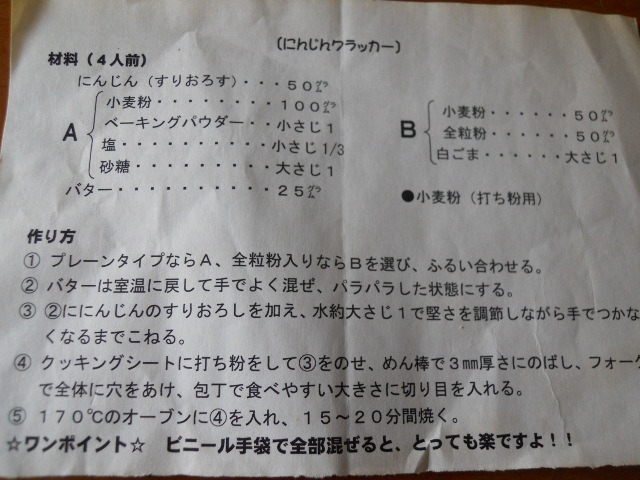 (にんじんクラッカー)
材料(4人前)
にんじん(すりおろす)・・・50グラム
A
小麦粉・・・・・・・・・100グラム
ベーキングパウダー・・小さじ1
塩・・・・・・・・・・小さじ1/3
砂糖・・・・・・・・・大さじ1
バター・・・・・・・・・・25グラム
B
小麦粉・・・・・・50グラム
全粒粉・・・・・・50グラム
白ごま・・・・・大さじ1
●小麦粉(打ち粉用)
作り方
① プレーンタイプならA、全粒粉入りならBを選び、ふるい合わせる。
② バターは室温に戻して手でよく混ぜ、パラパラした状態にする。
③ ②ににんじんのすりおろしを加え、水約大さじ1で堅さを調節しながら手でつかな
くなるまでこねる。
④ クッキングシートに打ち粉をして③をのせ、めん棒で3mm厚さにのばし、フォーク
で全体に穴をあけ、包丁で食べやすい大きさに切り目を入れる。
⑤ 170℃のオーブンに④を入れ、15～20分間焼く。
☆ワンポイント☆ ビニール手袋で全部混ぜると、とっても楽ですよ!!